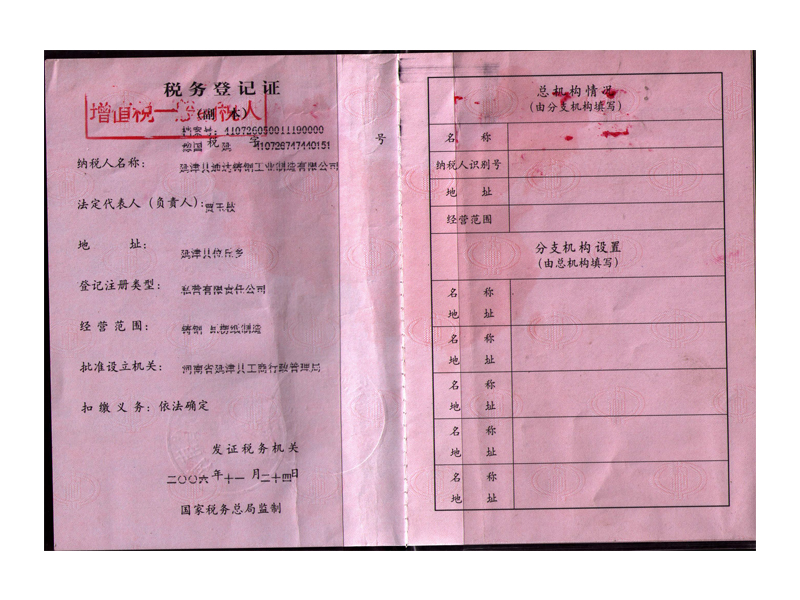 税务登记证
(副本)
增值税一般纳税人
档案号: 410726050011190000
豫国 税 延 字 410726747440151 号
纳税人名称: 延津县地达铸钢工业制造有限公司
法定代表人(负责人): 贾玉枝
地 址: 延津县位丘乡
登记注册类型: 私营有限责任公司
经营范围: 铸钢
批准设立机关: 河南省延津县工商行政管理局
扣缴义务: 依法确定
发证税务机关
二〇〇六年十一月二十四日
国家税务总局监制
总机构情况
(由分支机构填写)
名 称
纳税人识别号
地 址
经营范围
分支机构设置
(由总机构填写)
名 称
地 址
名 称
地 址
名 称
地 址
名 称
地 址
名 称
地 址